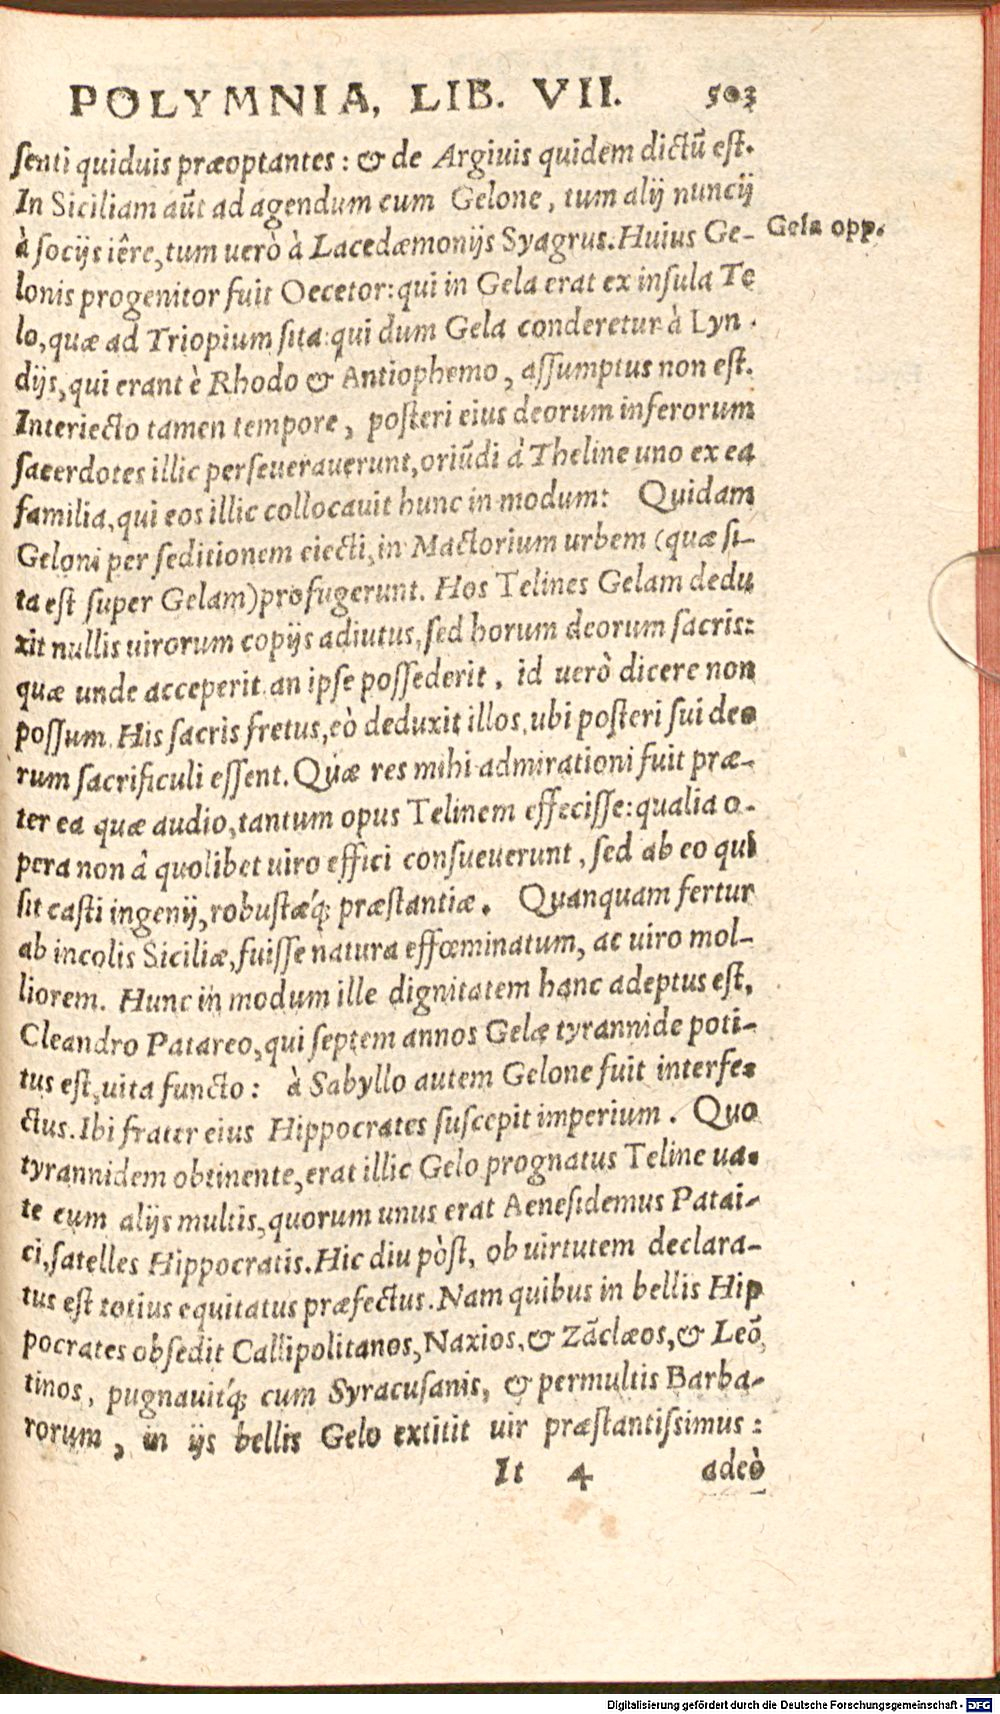 POLYMNIA, LIB. VII. 503
senti quiduis præoptantes: & de Argiuis quidem dictũ est.
In Siciliam aũt ad agendum cum Gelone, tum alij nuncij
à socijs iêre, tum uerò à Lacedæmonijs Syagrus. Huius Ge-
Gela opp.
lonis progenitor fuit Oecetor: qui in Gela erat ex insula Te
lo, quæ ad Triopium sita: qui dum Gela conderetur à Lyn-
dijs, qui erant è Rhodo & Antiophemo, assumptus non est.
Interiecto tamen tempore, posteri eius deorum inferorum
sacerdotes illic perseuerauerunt, oriũdi à Theline uno ex ea
familia, qui eos illic collocauit hunc in modum: Quidam
Geloni per seditionem eiecti, in Mactorium urbem (quæ si-
ta est super Gelam) profugerunt. Hos Telines Gelam dedu
xit nullis uirorum copijs adiutus, sed horum deorum sacris:
quæ unde acceperit, an ipse possederit, id uerò dicere non
possum. His sacris fretus, eò deduxit illos, ubi posteri sui deo
rum sacrificuli essent. Quæ res mihi admirationi fuit præ-
ter ea quæ audio, tantum opus Telinem effecisse: qualia o-
pera non â quolibet uiro effici consueuerunt, sed ab eo qui
sit casti ingenij, robustæq́; præstantiæ. Quanquam fertur
ab incolis Siciliæ, fuisse natura effœminatum, ac uiro mol-
liorem. Hunc in modum ille dignitatem hanc adeptus est,
Cleandro Patareo, qui septem annos Gelæ tyrannide poti-
tus est, uita functo: à Sabyllo autem Gelone fuit interfe-
ctus. Ibi frater eius Hippocrates suscepit imperium. Quo
tyrannidem obtinente, erat illic Gelo prognatus Teline ua-
te cum alijs multis, quorum unus erat Aenesidemus Patai-
ci, satelles Hippocratis. Hic diu pòst, ob uirtutem declara-
tus est totius equitatus præfectus. Nam quibus in bellis Hip
pocrates obsedit Callipolitanos, Naxios, & Zãclæos, & Leõ
tinos, pugnauitq́; cum Syracusanis, & permultis Barba-
rorum, in ijs bellis Gelo extitit uir præstantissimus:
It 4 adeò
Digitalisierung gefördert durch die Deutsche Forschungsgemeinschaft - DFG